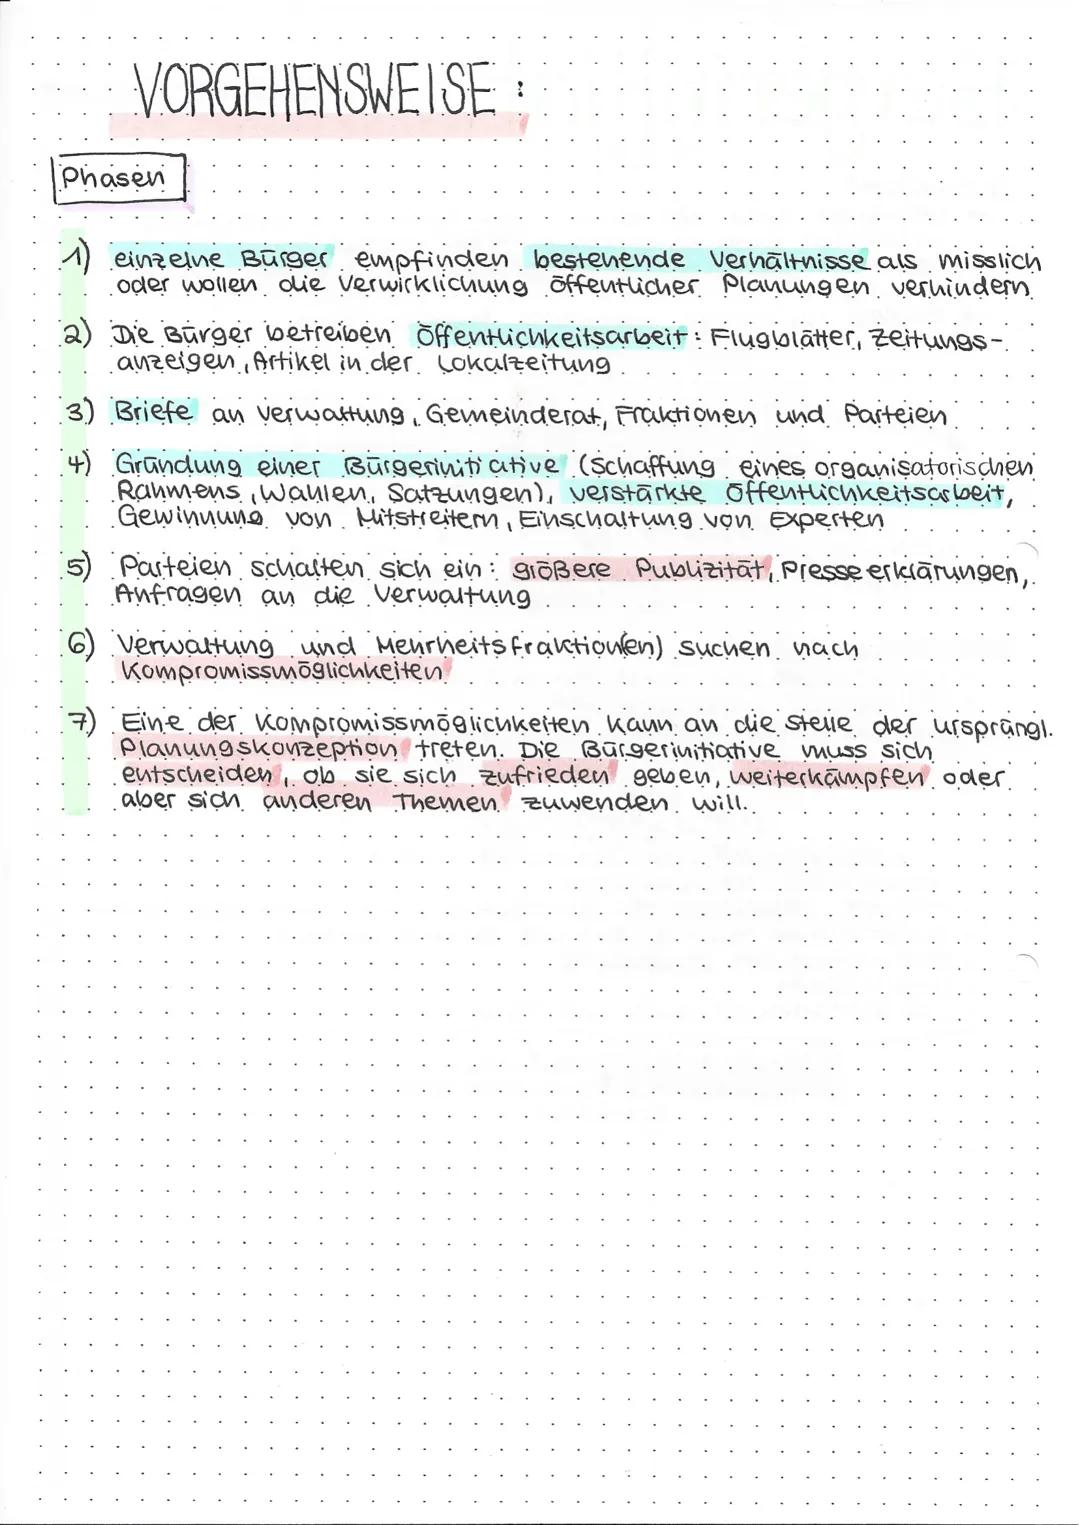 VORGEHENSWEISE :
Phasen
1) einzelne Bürger empfinden bestehende Verhältnisse als misslich
oder wollen die Verwirklichung öffentlicher Planungen verhindern
2) Die Bürger betreiben Öffentlichkeitsarbeit : Flugblätter, Zeitungs-
anzeigen, Artikel in der Lokalzeitung
3) Briefe an Verwaltung, Gemeinderat, Fraktionen und Parteien
4) Gründung einer Bürgerinitiative (Schaffung eines organisatorischen
Rahmens, Wahlen, Satzungen), verstärkte Öffentlichkeitsarbeit,
Gewinnung von Mitstreitern, Einschaltung von Experten
5) Parteien schalten sich ein : größere Publizität, Presseerklärungen,
Anfragen an die Verwaltung
6) Verwaltung und Mehrheitsfraktion(en) suchen nach
Kompromissmöglichkeiten
7) Eine der Kompromissmöglichkeiten kann an die Stelle der ursprüngl.
Planungskonzeption treten. Die Bürgerinitiative muss sich
entscheiden, ob sie sich zufrieden geben, weiterkämpfen oder
aber sich anderen Themen zuwenden will.